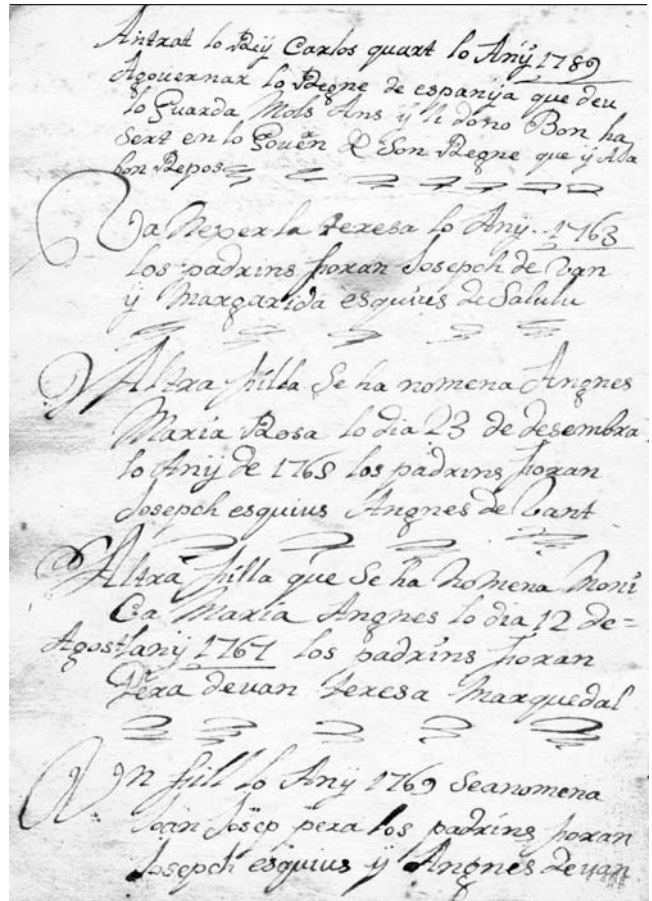 Antrat lo Reÿ Carlos quart lo Anÿ 1789
Agouernar lo Regne de espanÿa que deu
lo Guarda Mols Ans ÿ li dono Bon ha
Sert en lo Gouern de Son Regne que ÿ Aia
bon Repos
Va Nexer la teresa lo Anÿ 1763
los padrins foran Josepch de Van
ÿ Margarida esquius de Salulu
Altra filla Se ha nomena Angnes
Maria Rosa lo dia 23 de desembra
lo Anÿ de 1765 los padrins foran
Josepch esquius Angnes de Vant
Altra filla que Se ha Nomena Moni
Ca Maria Angnes lo dia 12 de=
Agost lanÿ 1767 los padrins foran
Pera deuan teresa Marquedal
Un fill lo Anÿ 1769 Seanomena
Joan Josep pera los padrins foran
Josepch esquius ÿ Angnes deuan